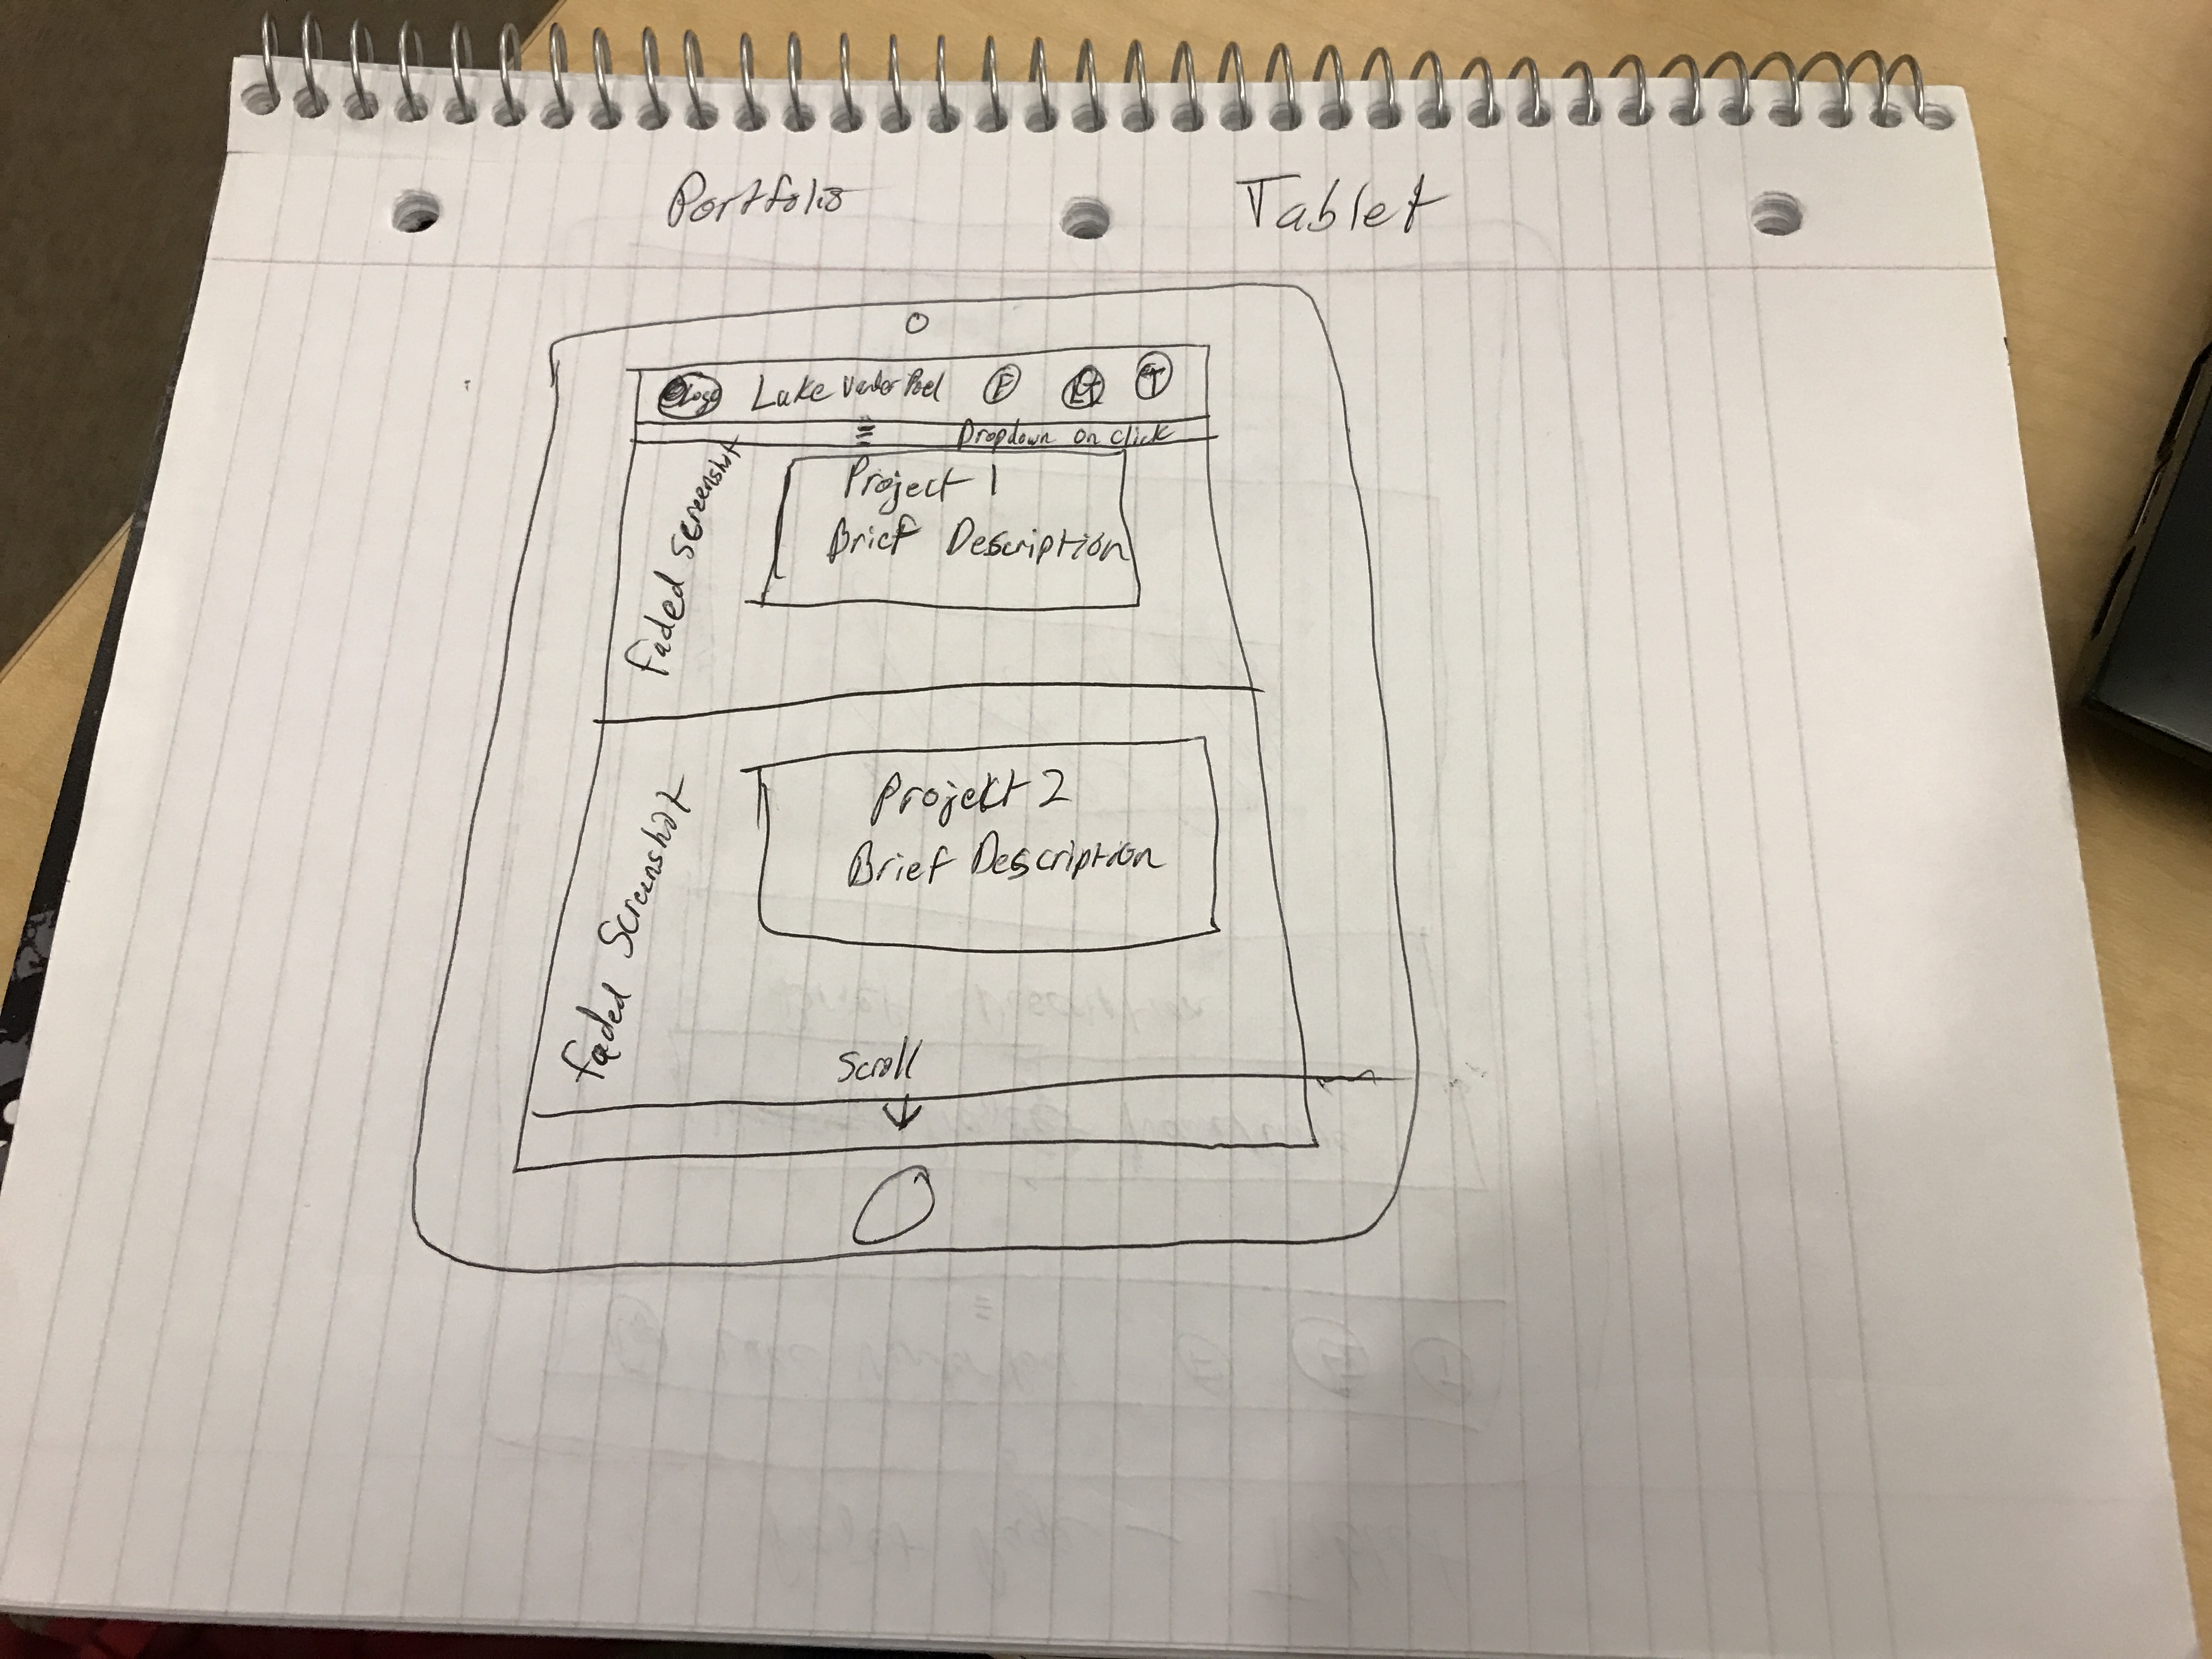 Portfolio Tablet
Luke
Dropdown on click
Faded screenshot
Project 1
Brief Description
Faded Screenshot
Project 2
Brief Description
Scroll